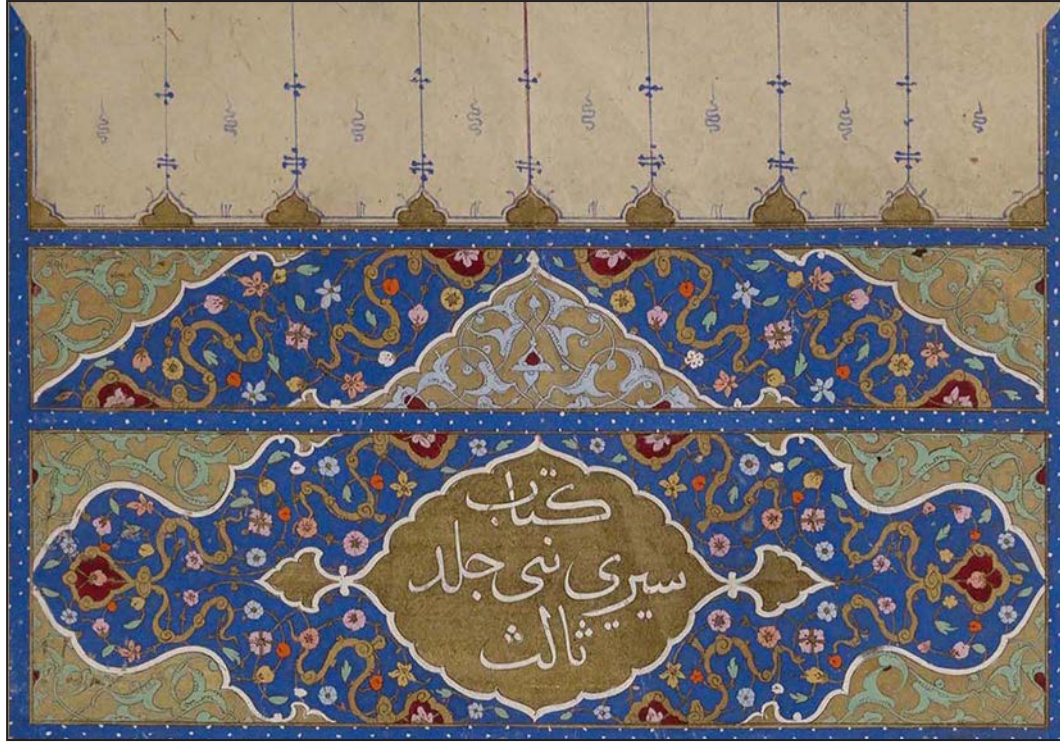 كتاب
سيري نبى جلد
ثالث